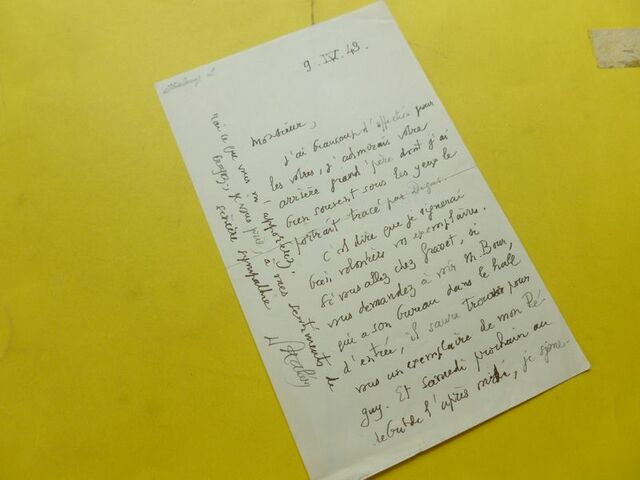 9. IV. 43.
Monsieur,
J'ai beaucoup d'affection pour
les vôtres, j'admirais votre
arrière grand'père dont j'ai
bien souvent sous les yeux le
portrait tracé par Degas.
C'est dire que je signerai
bien volontiers vos exemplaires.
Si vous allez chez Grasset, si
vous demandez à voir M. Bour,
qui a son bureau dans le hall
d'entrée, il saura trouver pour
vous un exemplaire de mon Pé
guy. Et samedi prochain au
début de l'après midi, je signe-
rai ce que vous m'apporterez.
Croyez, je vous prie, à mes sentiments de
sincère sympathie
D Halévy